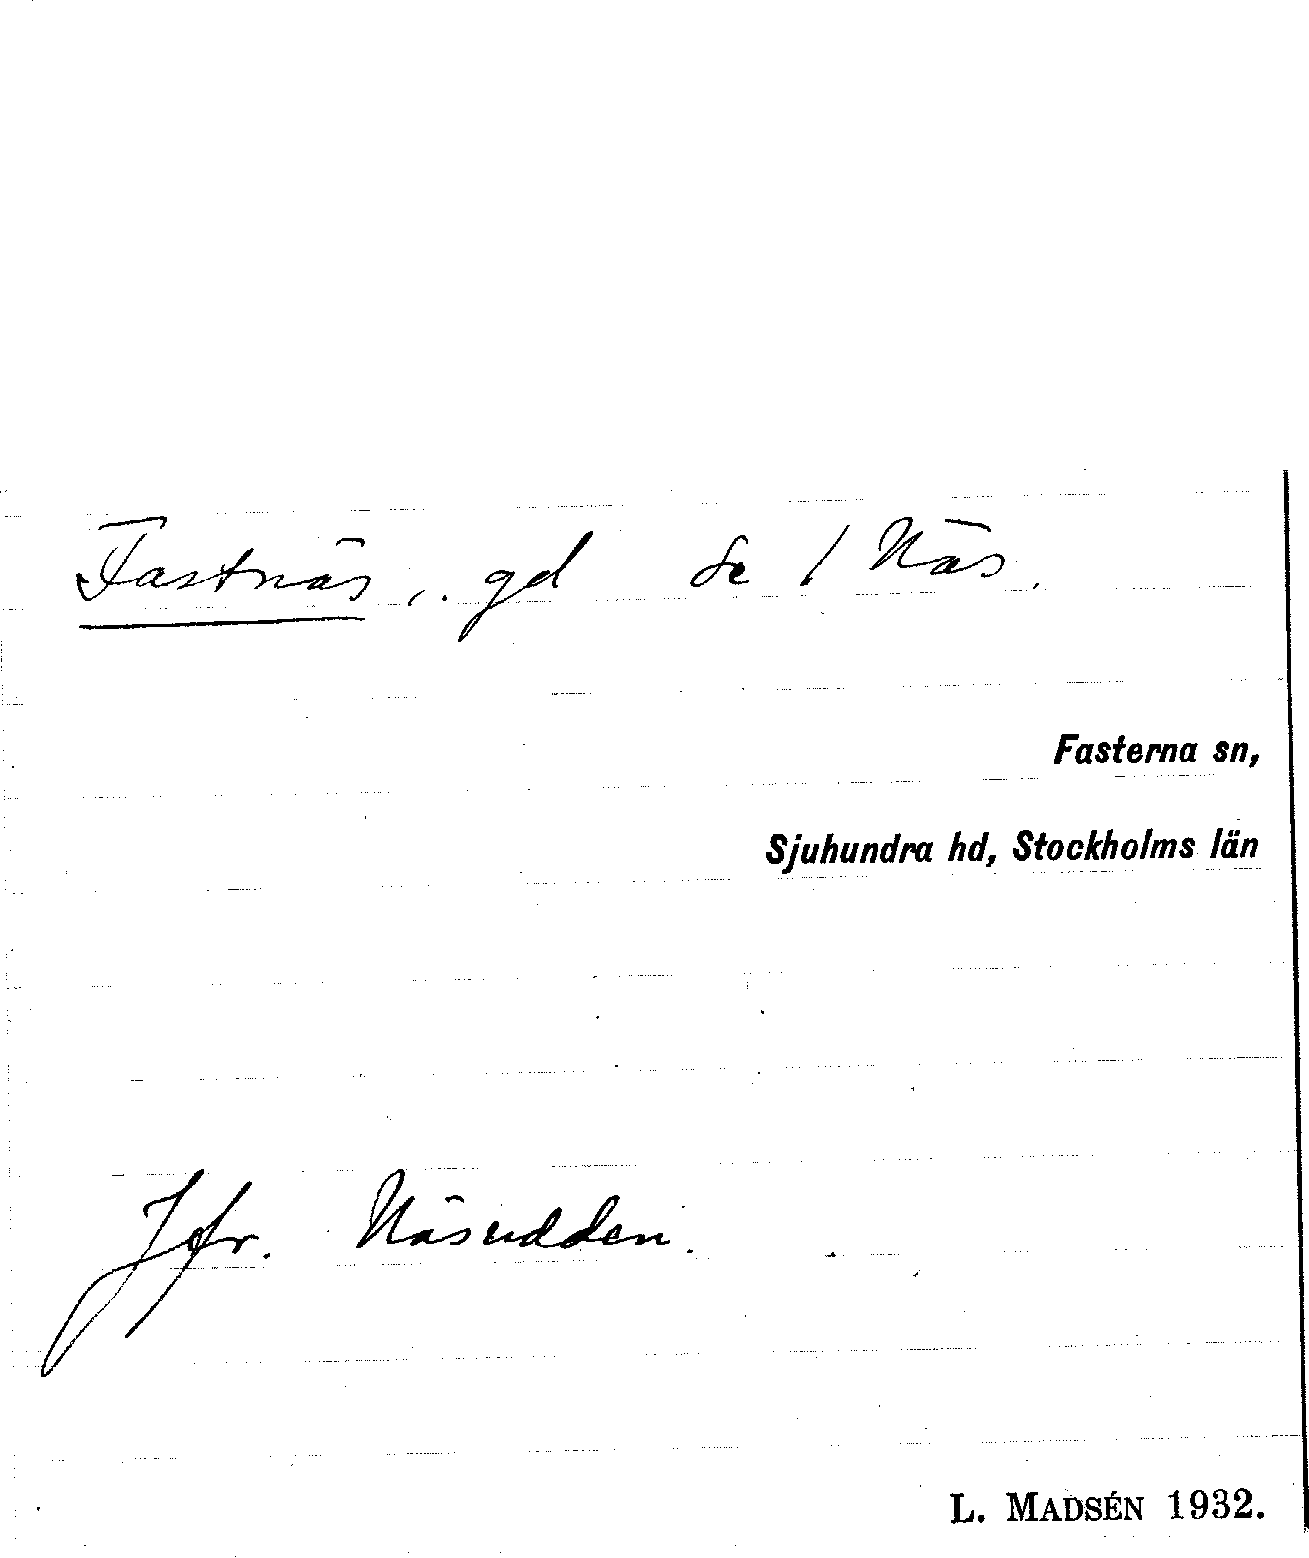 Fastnäs, gd se 1 Näs.
Fasterna sn,
Sjuhundra hd, Stockholms län
Jfr. Näsudden.
L. MADSÉN 1932.